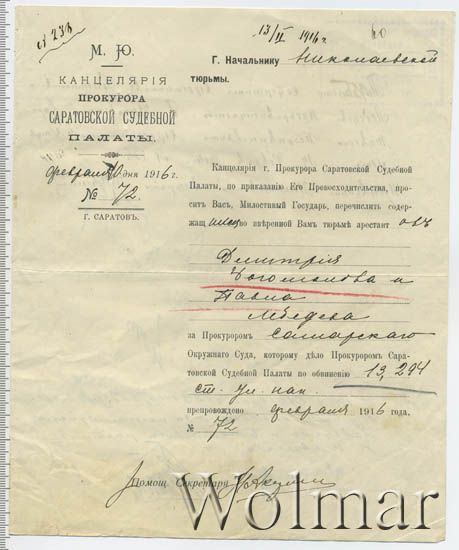 13/II 1916 г.
60
М. Ю.
КАНЦЕЛЯРІЯ
ПРОКУРОРА
САРАТОВСКОЙ СУДЕБНОЙ
ПАЛАТЫ.
февраля 10 дня 1916 г.
№ 72
Г. САРАТОВЪ.
Г. Начальнику Николаевской
тюрьмы.
Канцелярія г. Прокурора Саратовской Судебной
Палаты, по приказанію Его Превосходительства, про-
ситъ Васъ, Милостивый Государь, перечислить содер-
жащихся во ввѣренной Вамъ тюрьмѣ арестантовъ
Димитрія
Богомолова и
Павла
Лебедева
за Прокуроромъ Самарскаго
Окружнаго Суда, которому дѣло Прокуроромъ Сара-
товской Судебной Палаты по обвиненію 13, 294
ст. ул. нак.
препровождено февраля 1916 года.
№ 72
Помощ. Секретаря
Wolmar